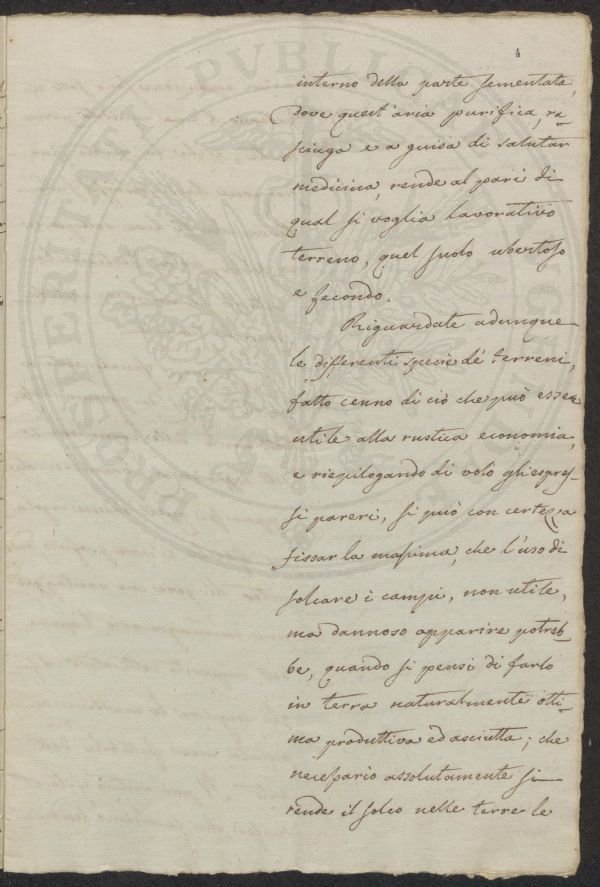 4
interno della parte sementata,
dove quest'aria purifica, ra=
sciuga e a guisa di salutar
medicina, rende al pari di
qual si voglia lavorativo
terreno, quel suolo ubertoso
e fecondo.
Riguardate adunque
le differenti specie de' terreni,
fatto cenno di ciò che può essere
utile alla rustica economia,
e riepilogando di volo gli espres=
si pareri, si può con certezza
fissar la massima, che l'uso di
solcare i campi, non utile,
ma dannoso apparire potreb=
be, quando si pensi di farlo
in terra naturalmente otti=
ma produttiva ed asciutta; che
necessario assolutamente si
rende il solco nelle terre le
PROSPERITATI PVBLICAE